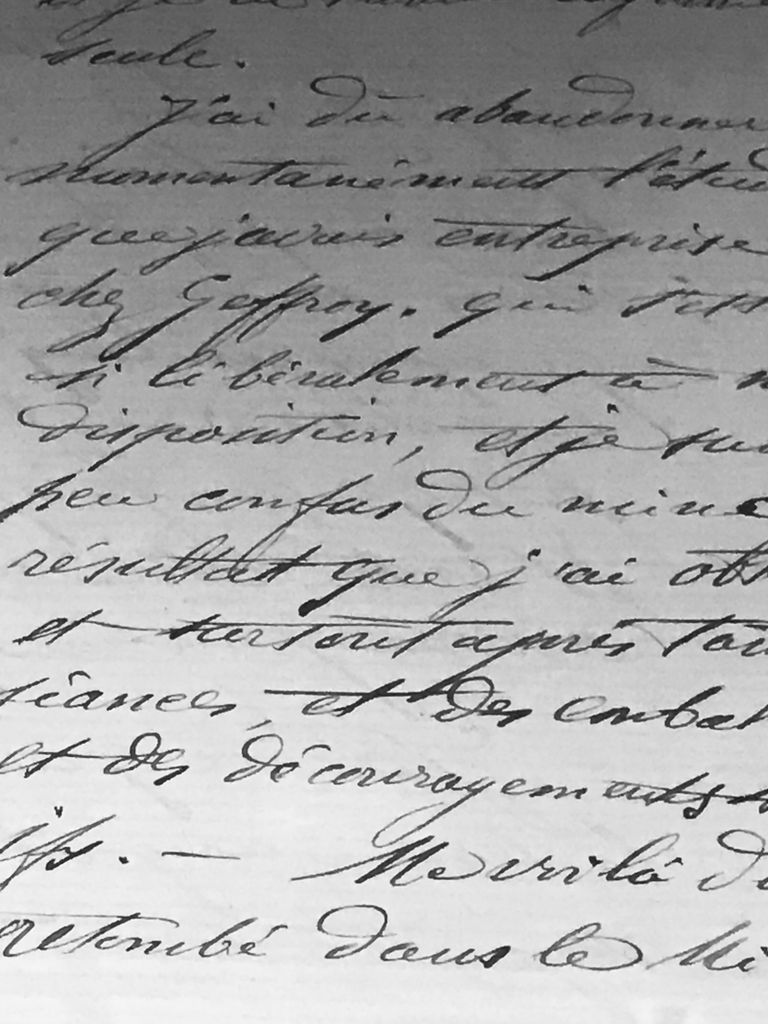 seule.
J'ai dû abandonner
momentanément l'étud
que j'avais entreprise
chez Geffroy. qui s'est
si libéralement à m
disposition, et je sui
peu confus du mince
résultat que j'ai obt
et surtout après tan
séances, et des combat
et des découragements
ifs. — Me voilà du
retombé dans le Mi